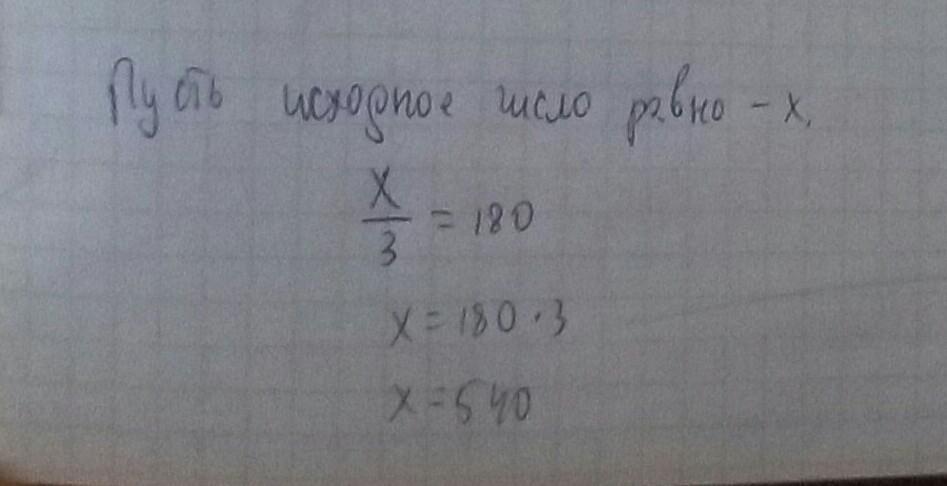 Пусть исходное число равно - x.
x/3 = 180
x = 180 · 3
x = 540